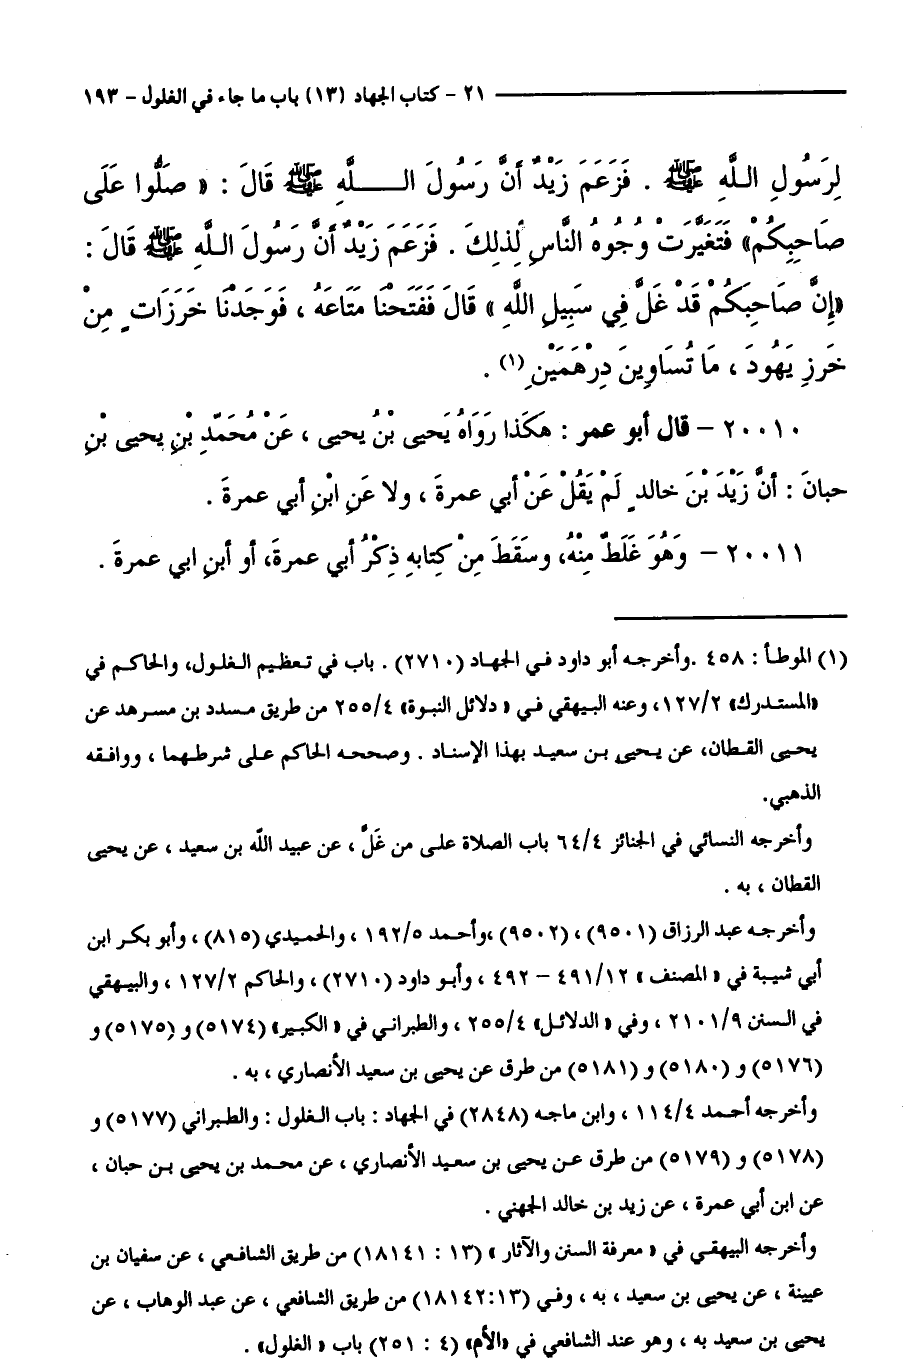 ٢١ - كتاب الجهاد (١٣) باب ما جاء في الغلول - ١٩٣
لِرَسُولِ اللَّهِ ﷺ . فَزَعَمَ زَيْدٌ أَنَّ رَسُولَ اللَّهِ ﷺ قَالَ : « صَلُّوا عَلَى
صَاحِبِكُمْ» فَتَغَيَّرَتْ وُجُوهُ النَّاسِ لِذلِكَ . فَزَعَمَ زَيْدٌ أَنَّ رَسُولَ اللَّهِ ﷺ قَالَ :
«إِنَّ صَاحِبَكُمْ قَدْ غَلَّ فِي سَبِيلِ اللَّهِ » قَالَ فَفَتَحْنَا مَتَاعَهُ ، فَوَجَدْنَا خَرَزَاتٍ مِنْ
خَرَزِ يَهُودَ ، مَا تُسَاوِينَ دِرْهَمَيْنِ (١) .
٢٠٠١٠ - قال أبو عمر : هكَذا رَوَاهُ يَحيى بْنُ يُحيى ، عَنْ مُحَمَّدِ بْنِ يحيى بْنِ
حبانَ : أنَّ زَيْدَ بْنَ خالدٍ لَمْ يَقُلْ عَنْ أبي عمرةَ ، ولا عَنِ ابْنِ أبي عمرةَ .
٢٠٠١١ - وَهُوَ غَلَطٌ مِنْهُ، وسَقَطَ مِنْ كِتابهِ ذِكْرُ أبي عمرةَ، أو أبنِ ابي عمرةَ .
(١) الموطأ : ٤٥٨ .وأخرجه أبو داود في الجهاد (٢٧١٠) . باب في تعظيم الغلول، والحاكم في
«المستدرك» ١٢٧/٢، وعنه البيهقي في « دلائل النبوة» ٢٥٥/٤ من طريق مسدد بن مسرهد عن
يحيى القطان، عن يحيى بن سعيد بهذا الإسناد . وصححه الحاكم على شرطهما ، ووافقه
الذهبي.
وأخرجه النسائي في الجنائز ٦٤/٤ باب الصلاة على من غَلَّ ، عن عبيد اللّه بن سعيد ، عن يحيى
القطان ، به .
وأخرجه عبد الرزاق (٩٥٠١) ، (٩٥٠٢) ،وأحمد ١٩٢/٥ ، والحميدي (٨١٥) ، وأبو بكر ابن
أبي شيبة في « المصنف » ٤٩١/١٢ - ٤٩٢ ، وأبو داود (٢٧١٠) ، والحاكم ١٢٧/٢ ، والبيهقي
في السنن ٢١٠١/٩ ، وفي « الدلائل» ٢٥٥/٤ ، والطبراني في « الكبير» (٥١٧٤) و (٥١٧٥) و
(٥١٧٦) و (٥١٨٠) و (٥١٨١) من طرق عن يحيى بن سعيد الأنصاري ، به .
وأخرجه أحمد ١١٤/٤ ، وابن ماجه (٢٨٤٨) في الجهاد : باب الغلول : والطبراني (٥١٧٧) و
(٥١٧٨) و (٥١٧٩) من طرق عن يحيى بن سعيد الأنصاري ، عن محمد بن يحيى بن حبان ،
عن ابن أبي عمرة ، عن زيد بن خالد الجهني .
وأخرجه البيهقي في « معرفة السنن والآثار » (١٣ : ١٨١٤١) من طريق الشافعي ، عن سفيان بن
عيينة ، عن يحيى بن سعيد ، به ، وفي (١٨١٤٢:١٣) من طريق الشافعي ، عن عبد الوهاب ، عن
يحيى بن سعيد به ، وهو عند الشافعي في «الأم» (٤ : ٢٥١) باب « الغلول» .